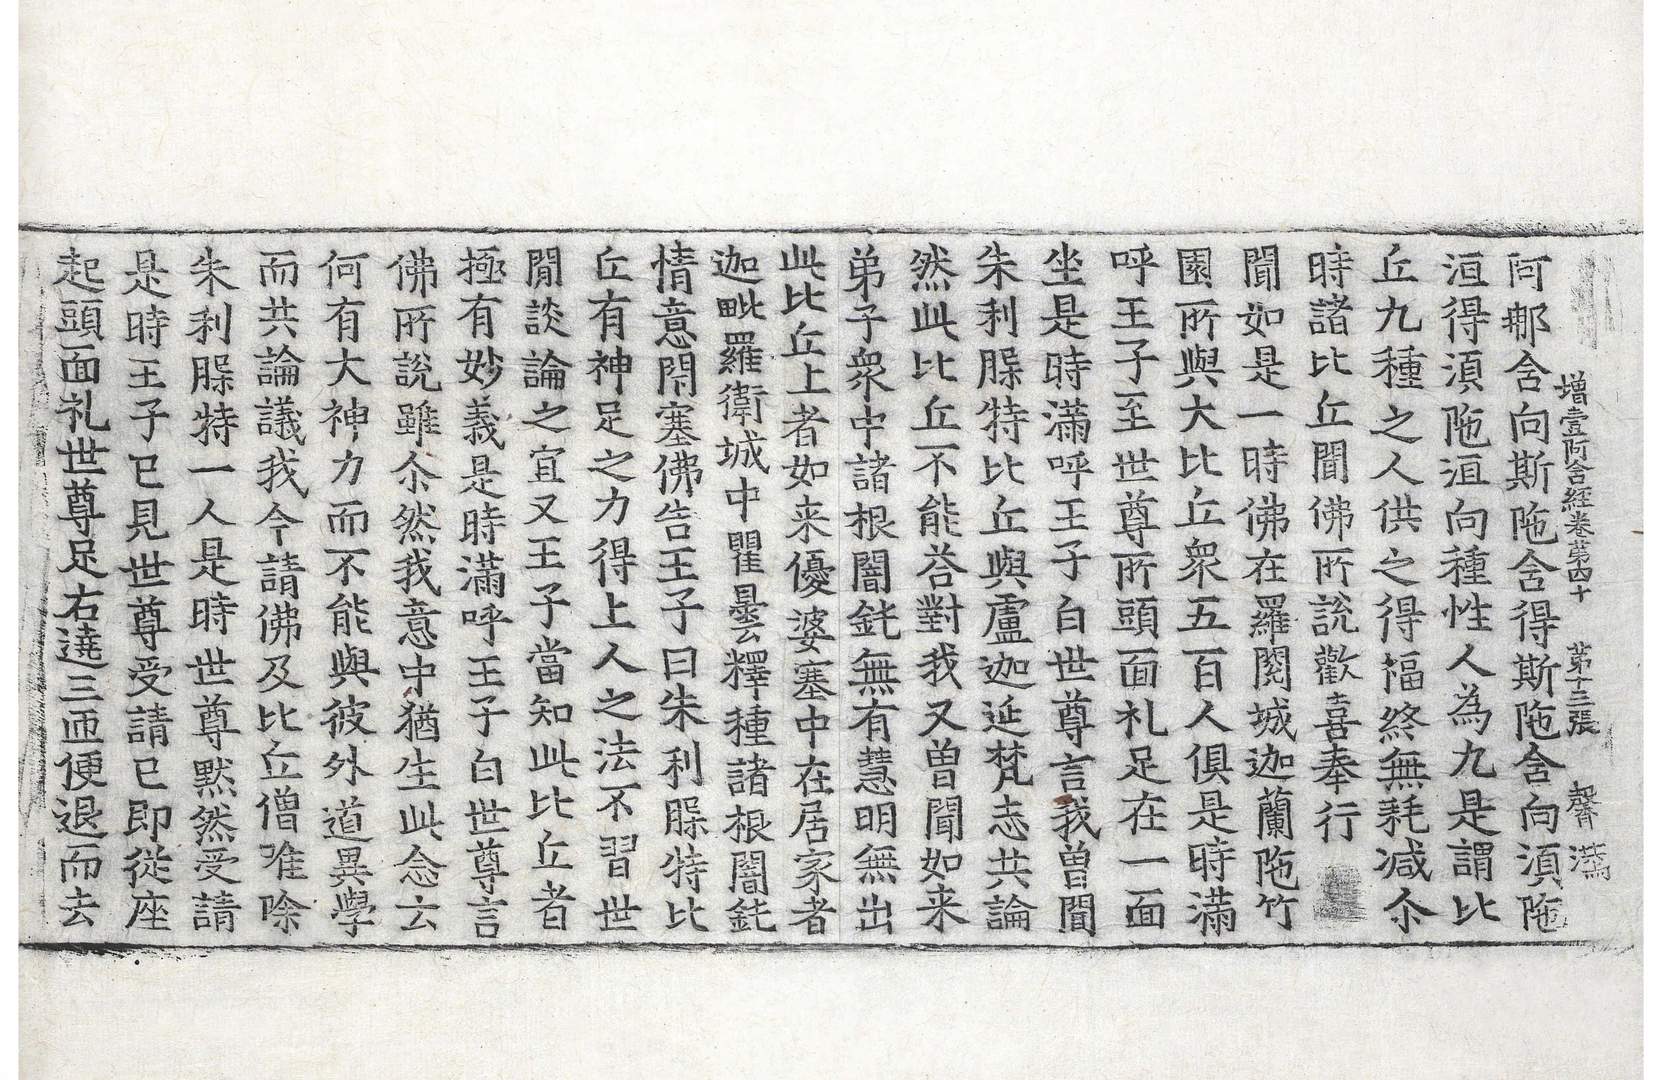 增壹阿含經卷第四十 第十三張 馨
阿那含向斯陁含得斯陁含向湏陁
洹得湏陁洹向種性人為九是謂比
丘九種之人供之得福終無耗減尒
時諸比丘聞佛所說歡喜奉行
聞如是一時佛在羅閱城迦蘭陁竹
園所與大比丘衆五百人俱是時滿
呼王子至世尊所頭面礼足在一面
坐是時滿呼王子白世尊言我曾聞
朱利槃特比丘與盧迦延梵志共論
然此比丘不能荅對我又曽聞如来
弟子衆中諸根闇鈍無有慧明無出
此比丘上者如来優婆塞中在居家者
迦毗羅衛城中瞿曇釋種諸根闇鈍
情意閇塞佛告王子曰朱利槃特比
丘有神足之力得上人之法不習世
閒談論之宜又王子當知此比丘者
極有妙義是時滿呼王子白世尊言
佛所說雖尒然我意中猶生此念云
何有大神力而不能與彼外道異學
而共論議我今請佛及比丘僧唯除
朱利槃特一人是時世尊黙然受請
是時王子已見世尊受請已即從座
起頭面礼世尊足右遶三匝便退而去